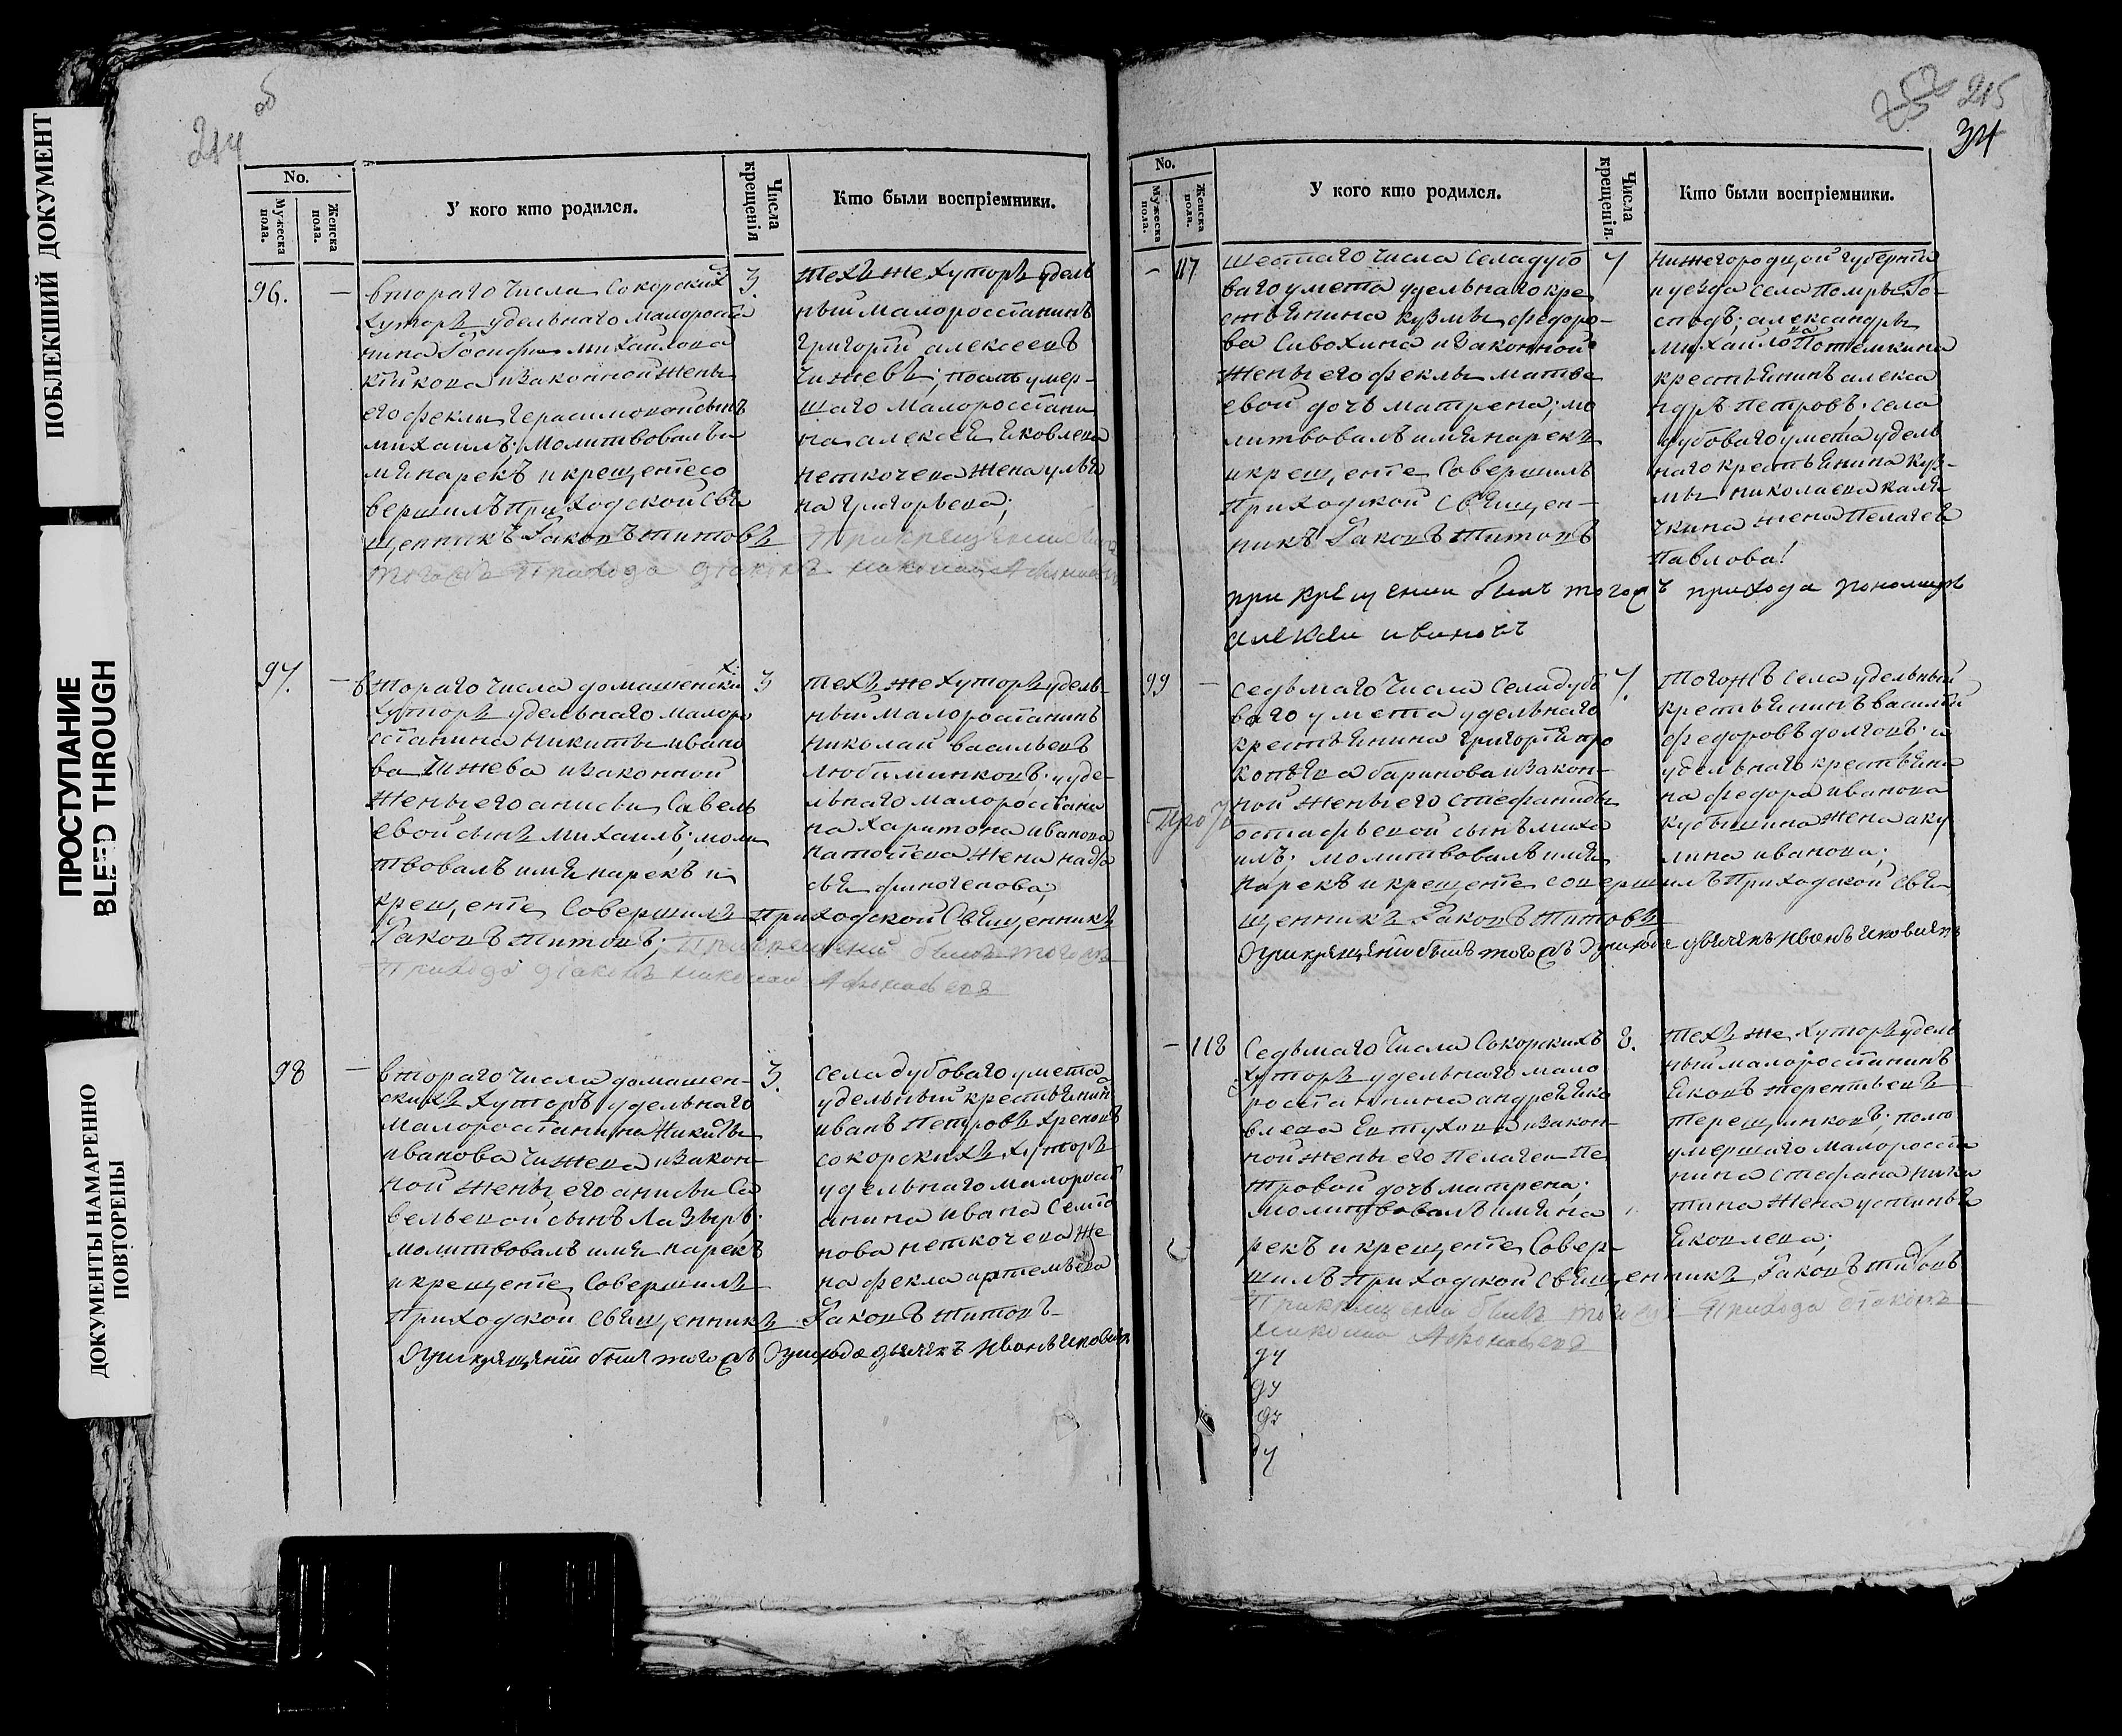 ПОБЛЕКШИЙ ДОКУМЕНТ
ПРОСТУПАНИЕ
BLEED THROUGH
ДОКУМЕНТЫ НАМАРЕННО
ПОВТОРЕНЫ
214 об
No.
Мужеска пола.
Женска пола.
У кого кто родился.
Числа крещенія
Кто были воспріемники.
96. — втораго числа Сокорских 3.
хуторъ удельнаго малоросія
нина Іосифа михайлова
и законной жены
его феклы герасимовой сынъ
михаилъ; молитвовалъ и
мя нарекъ и крещеніе со
вершилъ приходской свя
щенникъ Іаковъ титовъ
техъ же хуторъ удель
ный малоросіанинъ
григорій алексеевъ
чижевъ; поілѣ умер-
шаго малоросіани
на алексея яковлева
неткочева жена улья
на григорьева;
При крещеніи былъ
тогожъ прихода діаконъ николай Афонасьевъ
97. — втораго числа домашенски х. 3
хуторъ удельнаго малоро
сіанина никиты ивано
ва чижева и законной
жены его анисьи савель
евой сынъ михаилъ; моли
твовалъ имя нарекъ и
крещеніе совершилъ приходской священникъ
Іаковъ титовъ; При крещеніи былъ тогожъ
прихода діаконъ николай Афонасьевъ
техъ же хуторъ удель-
ный малоросіанинъ
николай васильевъ
уде-
льнаго малоросіани
на харитона иванова
жена
98 — втораго числа домашен- 3.
скихъ хуторъ удельнаго
малоросіанина Никиты
иванова чижева и закон-
ной жены его анисьи са
вельевой сынъ Лазырь;
молитвовалъ имя нарекъ
и крещеніе совершилъ
приходской священникъ Іаковъ титовъ
При крещеніи былъ тогожъ прихода дьячекъ иванъ яковлевъ
села дубоваго умета
удельный крестьянин
иванъ петровъ хреновъ
сокорскихъ хуторъ
удельнаго малоросі
анина ивана семіо
нова неткочева же
на фекла артемьева
252 215
34
No.
Мужеска пола.
Женска пола.
У кого кто родился.
Числа крещенія.
Кто были воспріемники.
— 117 шестаго числа села дубо 7
ваго умета удельнаго кре
стьянина кузмы федоро-
ва Сивохина и законной
жены его феклы матве
евой дочь матрена; мо
литвовалъ имя нарекъ
и крещеніе совершилъ
приходской священ-
никъ Іаковъ титовъ
нижегородцкой губерніи
и уезда села помры го-
сподъ; александры
михайловна Потемкина
крестьянинъ алекса
ндръ петровъ; села
дубоваго умета удель
наго крестьянина куз-
мы николаева каля
чкина жена Пелагея
Павлова!
при крещении былъ тогожъ прихода пономарь
алексеи ивановъ
99 — седьмаго числа села дубо 7.
ваго умета удельнаго
крестьянина григорія про
копьева баринова и закон-
ной жены его стефаниды
остафьевой сынъ миха
илъ; молитвовалъ имя
нарекъ и крещеніе совершилъ приходской свя
щенникъ Іаковъ титовъ
При крещеніи былъ тогожъ прихода дьячекъ иванъ яковлевъ
тогожъ села удельный
крестьянинъ василій
федоровъ долговъ; и
удельнаго крестьяни
на федора иванова
жена аку
лина иванова;
— 118 седьмаго числа Сокорскихъ 8.
хуторъ удельнаго мало
росіанина андрея яко
влева Евтухова и закон-
ной жены его пелагеи пе
тровой дочь матрена;
молитвовалъ имя на
рекъ и крещеніе совер-
шилъ приходской священникъ Іаковъ титовъ
При крещеніи былъ тогожъ прихода діаконъ
николай Афонасьевъ
техъ же хуторъ удель
ный малоросіанинъ
яковъ терентьевъ
терещинковъ;
умершаго малоросія
нина стефана ники
тина жена устинья
яковлева;